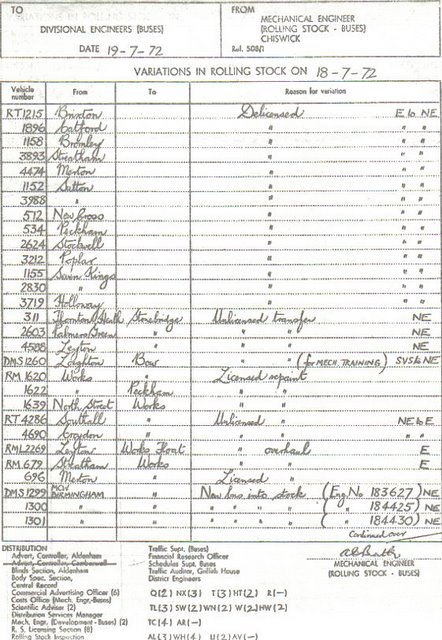 TO
DIVISIONAL ENGINEERS (BUSES)
DATE 19-7-72
FROM
MECHANICAL ENGINEER
(ROLLING STOCK - BUSES)
CHISWICK
Ref. 508/1
VARIATIONS IN ROLLING STOCK ON 18-7-72
Vehicle number From To Reason for variation
RT1215 Brixton Delicensed E to NE
1896 Catford " " "
1158 Bromley " " "
3893 Streatham " " "
4474 Merton " " "
1152 Sutton " " "
3988 " " " "
512 New Cross " " "
534 Peckham " " "
2624 Stockwell " " "
3212 Poplar " " "
1155 Seven Kings " " "
2830 " " " "
3719 Holloway " " "
311 Thornton Heath Stonebridge Unlicensed transfer NE
2603 Palmers Green " " " NE
4588 Leyton " " " NE
DMS1260 Loughton Bow " " (for MECH. TRAINING) SVS to NE
RM 1620 Works " Licensed repaint
1622 " Peckham " "
1639 North Street Works " "
RT 4286 Southall " Unlicensed " NE to E
4690 Croydon " " " " "
RML2269 Leyton Works Float " overhaul E
RM 679 Streatham Works " " E
696 Merton " Licensed "
DMS1299 MCW BIRMINGHAM " New bus into stock (Eng. No 183627) NE
1300 " " " " " " ( " 184425) NE
1301 " " " " " " ( " 184430) NE
Continued over
DISTRIBUTION
Advert. Controller, Aldenham
Advert. Controller, Camberwell
Blinds Section, Aldenham
Body Spec. Section,
Central Record
Commercial Advertising Officer (6)
Costs Office (Mech. Engr.-Buses)
Scientific Adviser (2)
Distribution Services Manager
Mech. Engr. (Development - Buses) (2)
R. S. Licensing Section (8)
Rolling Stock Inspector
Traffic Supt. (Buses)
Financial Research Officer
Schedules Supt. Buses
Traffic Auditor, Griffith House
District Engineers
Q(2) NX(3) T(3) HT(2) R(-)
TL(3) SW(2) WN(2) W(2) HW(2)
TC(4) AR(-)
AL(3) WH(4) U(2) AV(-)
MECHANICAL ENGINEER
(ROLLING STOCK - BUSES)